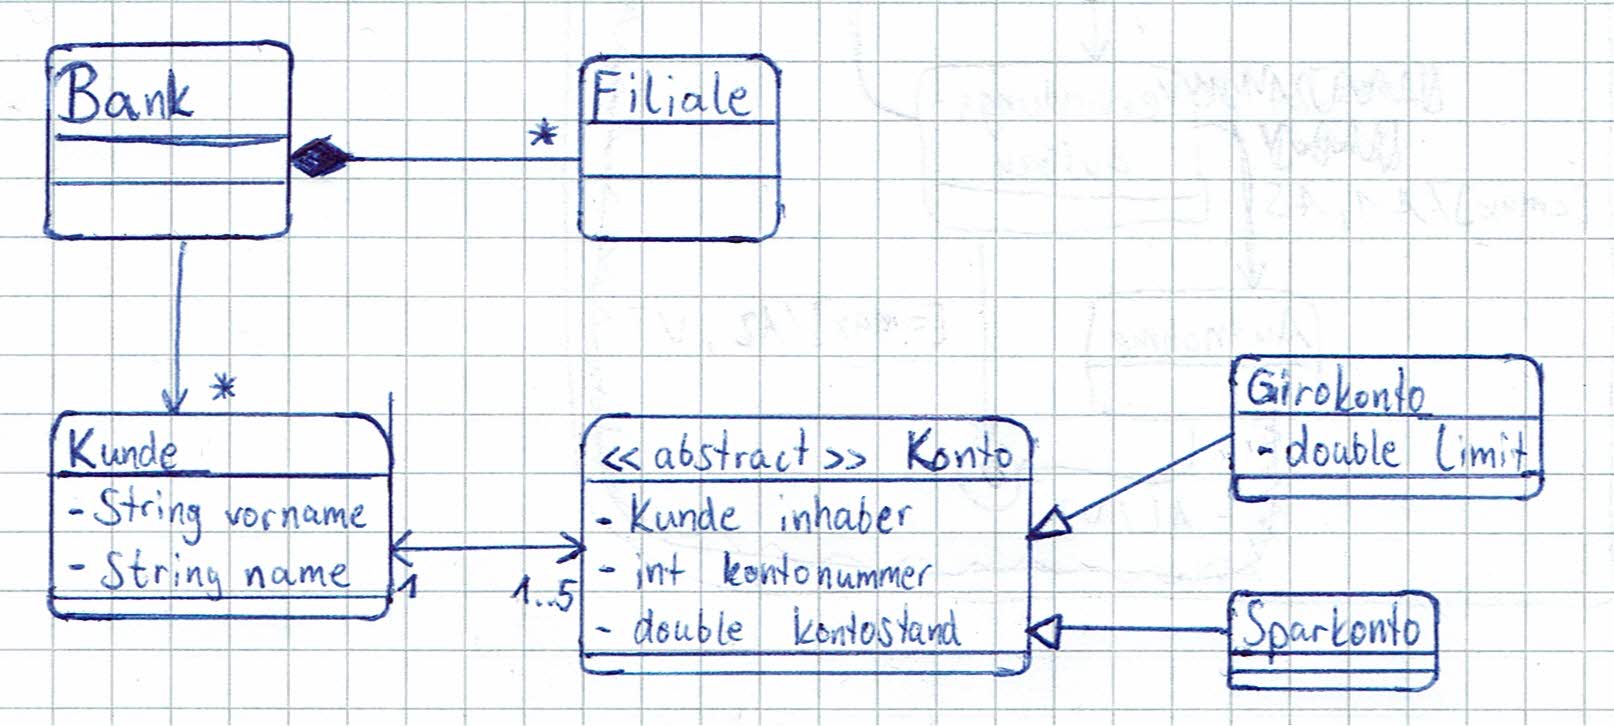 Bank
Filiale
*
*
Kunde
- String vorname
- String name
1
1..5
<< abstract >> Konto
- Kunde inhaber
- int kontonummer
- double kontostand
Girokonto
- double limit
Sparkonto